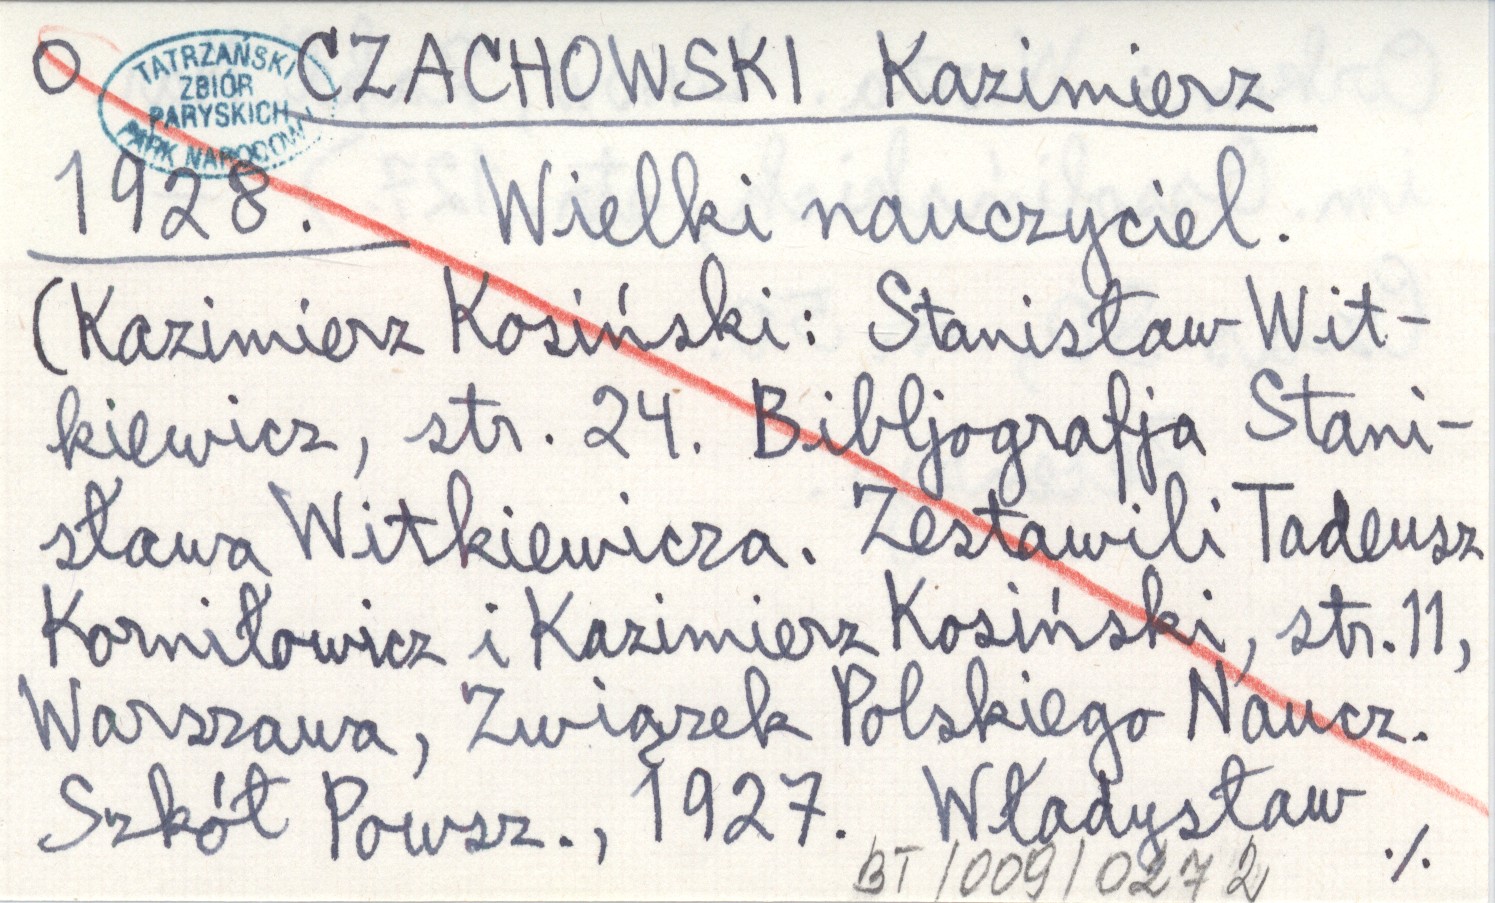 O CZACHOWSKI Kazimierz
TATRZAŃSKI
ZBIÓR
PARYSKICH
PARK NARODOWY
1928. Wielki nauczyciel.
(Kazimierz Kosiński: Stanisław Wit-
kiewicz, str. 24. Bibljografja Stani-
sława Witkiewicza. Zestawili Tadeusz
Korniłowicz i Kazimierz Kosiński, str. 11,
Warszawa, Związek Polskiego Naucz.
Szkół Powsz., 1927. Władysław
./.
BT/009/0272